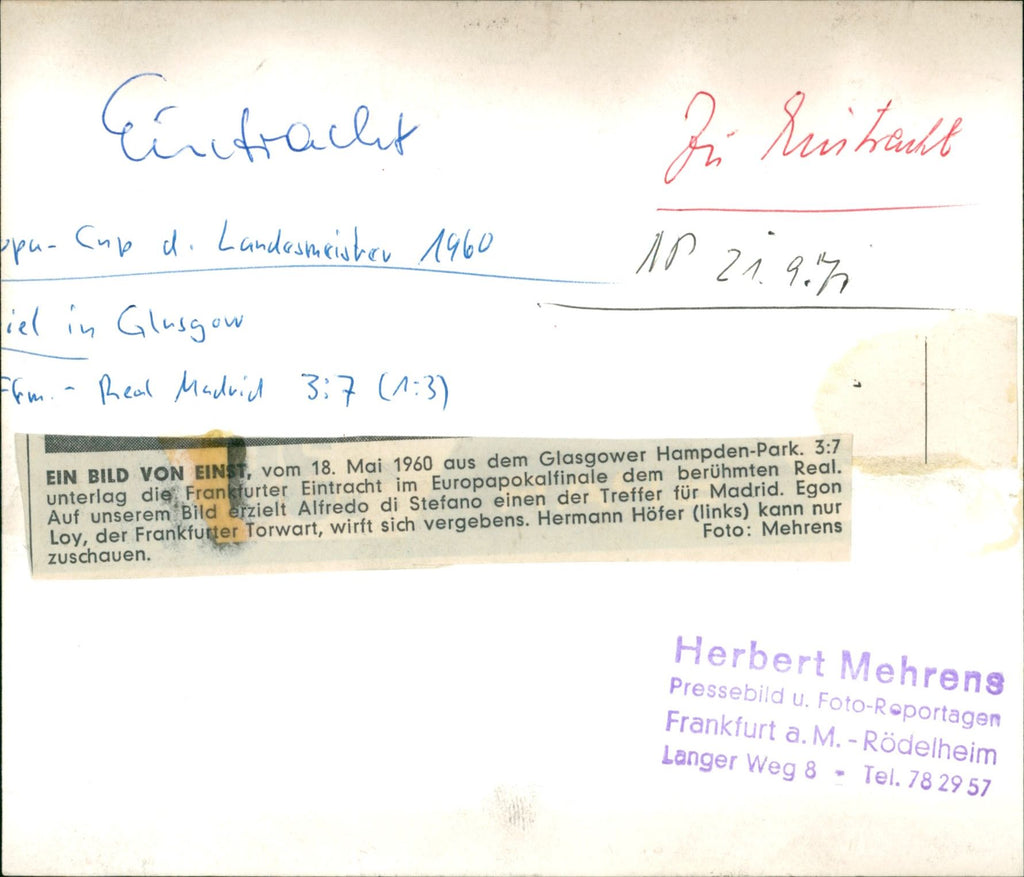 Eintracht
Zu Eintracht
opa-Cup d. Landesmeister 1960
NP 21.9.71
iel in Glasgow
Ffm. - Real Madrid 3:7 (1:3)
EIN BILD VON EINST, vom 18. Mai 1960 aus dem Glasgower Hampden-Park. 3:7
unterlag die Frankfurter Eintracht im Europapokalfinale dem berühmten Real.
Auf unserem Bild erzielt Alfredo di Stefano einen der Treffer für Madrid. Egon
Loy, der Frankfurter Torwart, wirft sich vergebens. Hermann Höfer (links) kann nur
zuschauen. Foto: Mehrens
Herbert Mehrens
Pressebild u. Foto-Reportagen
Frankfurt a. M. - Rödelheim
Langer Weg 8 - Tel. 78 29 57